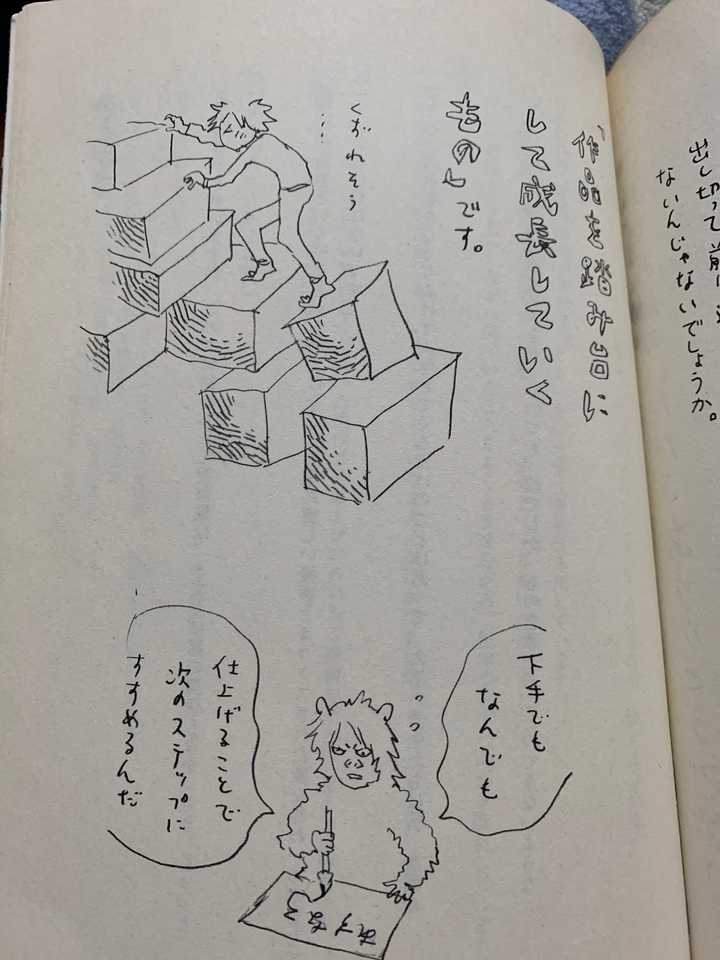 出し切って前に
ないんじゃないでしょうか。
「作品を踏み台に
して成長していく
もの」です。
くずれそう
…
下手でも
なんでも
仕上げることで
次のステップに
すすめるんだ